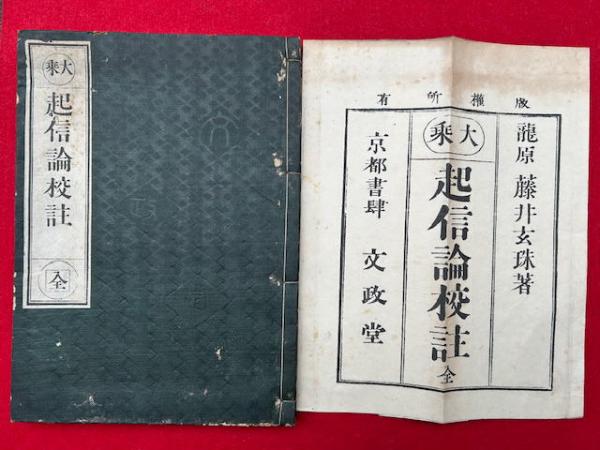 大乘
起信論校註
全
版權所有
龍原 藤井玄珠著
大乘
起信論校註 全
京都書肆 文政堂